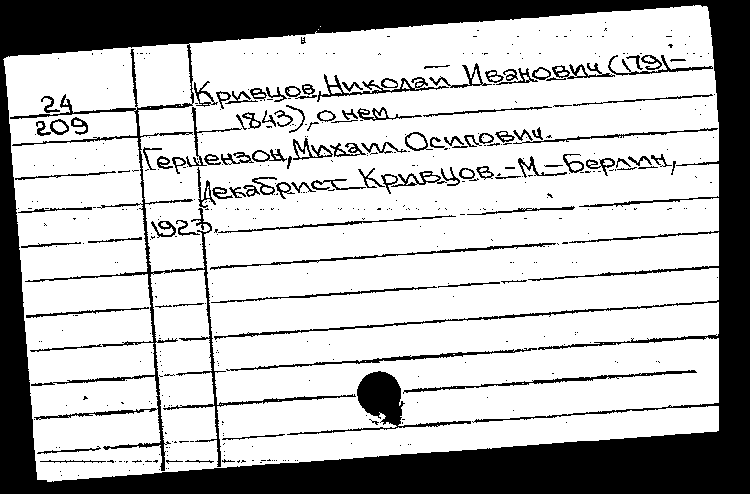 Кривцов, Николай Иванович (1791-
24
209
1843), о нем.
Гершензон, Михаил Осипович.
Декабрист Кривцов. - М. - Берлин,
1923.